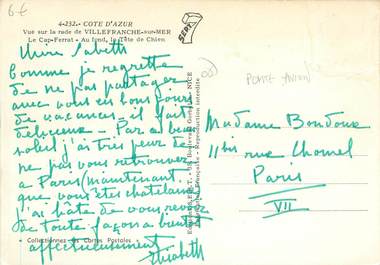 6€
4-232. - COTE D'AZUR
Vue sur la rade de VILLEFRANCHE-sur-MER
Le Cap-Ferrat - Au fond, la Tête de Chien
SEPT
Chère
Comme je regrette
de ne pas partager
avec vous ces bons jours
de vacances - il fait
délicieux - Par ce beau
soleil j'ai très peur de
ne pas vous retrouver
à Paris maintenant
que vous êtes
j'ai hâte de vous revoir
de toute façon à bientôt
affectueusement
Elisabeth
Collectionnez les Cartes Postales
NICE
Reproduction interdite
Madame Bondoux
11 bis rue Chomel
Paris
VII